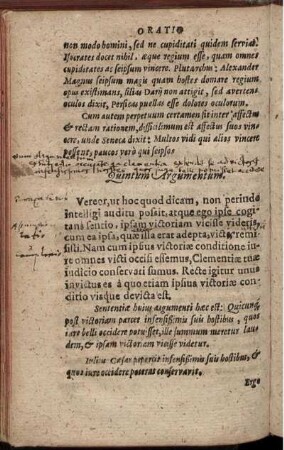 ORATIO
non modo homini, sed ne cupiditati quidem servias.
Isocrates docet nihil, æque regium esse, quam omnes
cupiditates ac seipsum vincere. Plutarchus: Alexander
Magnus seipsum magis quam hostes domare regium
opus existimans, filias Darij non attigit, sed avertens
oculos dixit, Persicas puellas esse dolores oculorum.
Cum autem perpetuum certamen sit inter affectum
& rectam rationem, difficilimum est affectus suos vin-
cere, unde Seneca dixit: Multos vidi qui alios vincere
possent, paucos vero qui seipsos
Quintum Argumentum.
Vereor, ut hoc quod dicam, non perinde
intelligi auditu possit, atque ego ipse cogi-
tans sentio, ipsam victoriam vicisse videris,
cum ea ipsa, quæ illa erat adepta, victis remi-
sisti. Nam cum ipsius victoriæ conditione iu-
re omnes victi occisi essemus, Clementiæ tuæ
iudicio conservati sumus. Recte igitur unus
invictus es à quo etiam ipsius victoriæ con-
ditio visque devicta est.
Sententiæ huius argumenti hæc est: Quicunq;
post victoriam parcet infensissimis suis hostibus, quos
iure belli occidere potuisset, ille summam meretur lau-
dem, & ipsam victoriam vicisse videtur.
Iulius Cæsar pepercit infensissimis suis hostibus, &
quos iure occidere poterat conservavit.
Ergo